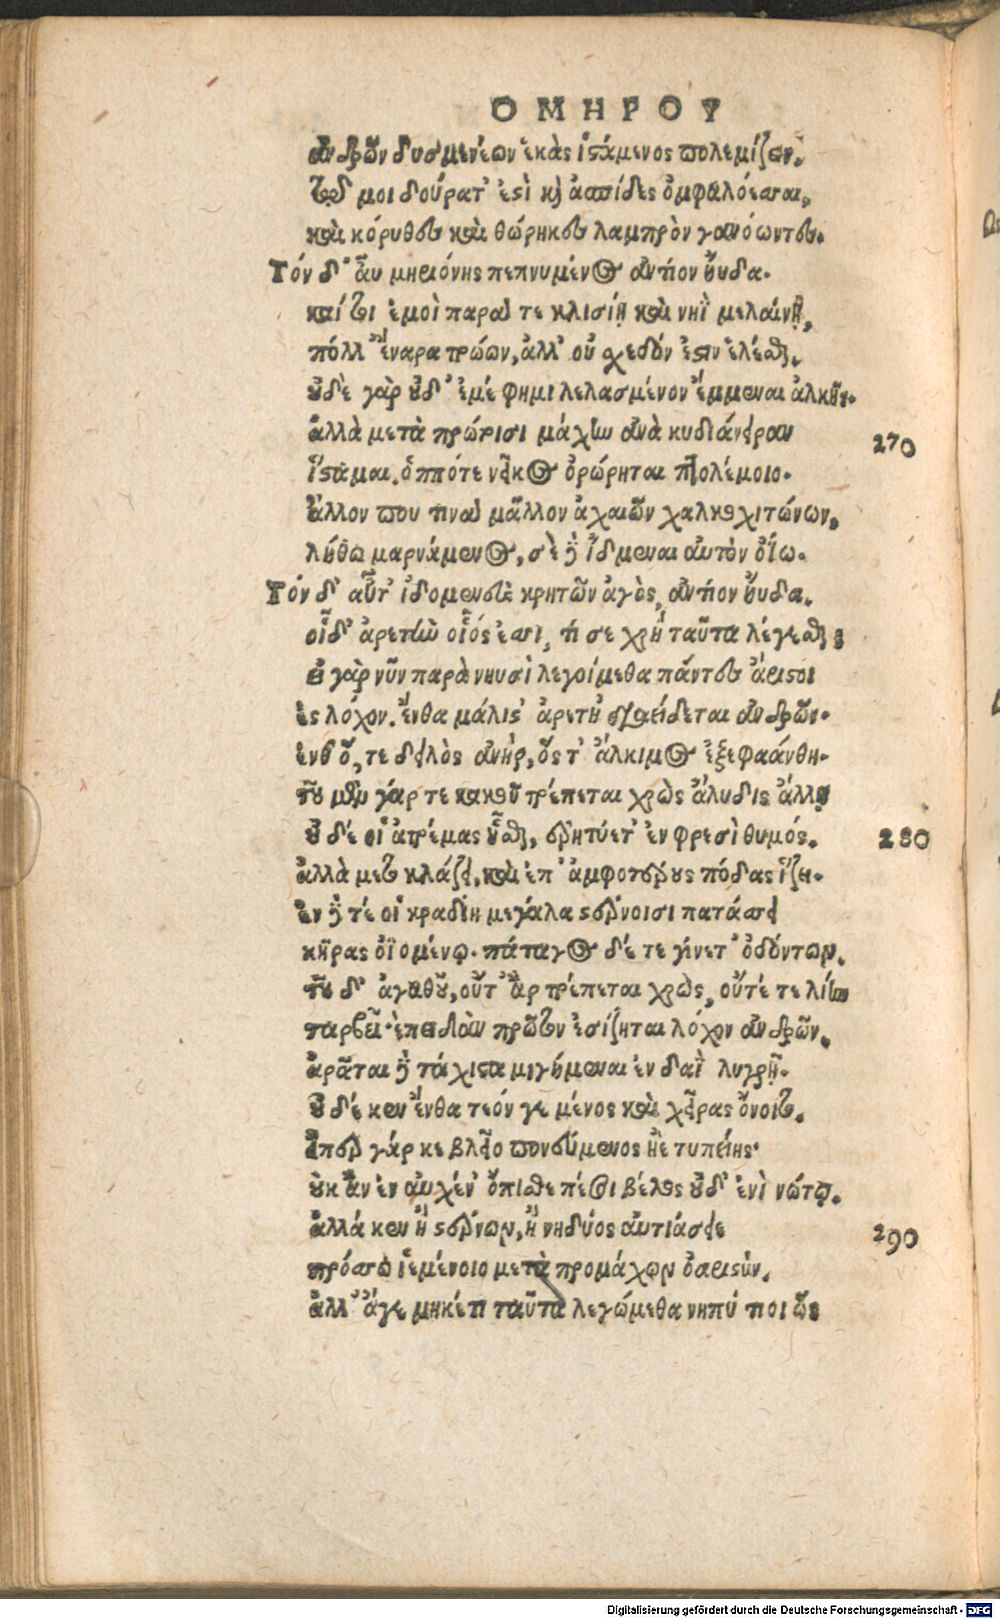 ΟΜΗΡΟΥ
ἀνδρῶν δυσμενέων ἑκὰς ἱστάμενος πολεμίζειν.
τῷ μοι δούρατ' ἐστὶ κὶ ἀσπίδες ὀμφαλόεσσαι,
καὶ κόρυθες καὶ θώρηκες λαμπρὸν γανόωντες.
Τόν δ' αὖ μηριόνης πεπνυμένος ἀντίον ηὔδα.
καί τοι ἐμοὶ παρά τε κλισίῃ καὶ νηῒ μελαίνῃ,
πόλλ' ἔναρα τρώων, ἀλλ' οὐ σχεδόν ἐστιν ἑλέσθαι.
οὐδὲ γὰρ οὐδ' ἐμέ φημι λελασμένον ἔμμεναι ἀλκῆς.
ἀλλὰ μετὰ πρώτοισι μάχην ἀνὰ κυδιάνειραν
270
ἵσταμαι. ὁππότε νεῖκος ὀρώρηται πτολέμοιο.
ἄλλον που τινὰ μᾶλλον ἀχαιῶν χαλκοχιτώνων,
λήθω μαρνάμενος, σὲ δὲ ἴδμεναι αὐτὸν ὀΐω.
Τόν δ' αὖτ' ἰδομενεὺς κρητῶν ἀγὸς, ἀντίον ηὔδα.
οἶδ' ἀρετὴν οἷός ἐσσι, τί σε χρὴ ταῦτα λέγεσθαι;
εἰ γὰρ νῦν παρὰ νηυσὶ λεγοίμεθα πάντες ἄριστοι
ἐς λόχον. ἔνθα μάλιστ' ἀρετὴ διαείδεται ἀνδρῶν.
ἔνθ' ὅ, τε δειλὸς ἀνὴρ, ὅς τ' ἄλκιμος ἐξεφαάνθη.
τοῦ μὲν γάρ τε κακοῦ τρέπεται χρὼς ἄλυδις ἄλλῃ
οὐδέ οἱ ἀτρέμας ἧσθαι, ἐρητύετ' ἐν φρεσὶ θυμός.
280
ἀλλὰ μετοκλάζει, καὶ ἐπ' ἀμφοτέρους πόδας ἵζει.
ἐν δὲ τέ οἱ κραδίη μεγάλα στέρνοισι πατάσσει
κῆρας ὀϊομένῳ. πάταγος δέ τε γίνετ' ὀδόντων.
τοῦ δ' ἀγαθοῦ, οὔτ' ἂρ τρέπεται χρὼς, οὔτέ τε λίην
ταρβεῖ. ἐπειδὰν πρῶτον ἐσίζηται λόχον ἀνδρῶν.
ἀρᾶται δὲ τάχιστα μιγήμεναι ἐν δαῒ λυγρῇ.
οὐδέ κεν ἔνθα τεόν γε μένος καὶ χεῖρας ὄνοιτο.
εἴπερ γάρ κε βλεῖο πονεύμενος ἠὲ τυπείης.
οὐκ ἂν ἐν αὐχέν' ὄπισθε πέσοι βέλος οὐδ' ἐνὶ νώτῳ.
ἀλλά κεν ἢ στέρνων, ἢ νηδύος ἀντιάσειε
290
πρόσσω ἱεμένοιο μετὰ προμάχων ὀαριστύν.
ἀλλ' ἄγε μηκέτι ταῦτα λεγώμεθα νηπύτιοι ὣς
Digitalisierung gefördert durch die Deutsche Forschungsgemeinschaft - DFG